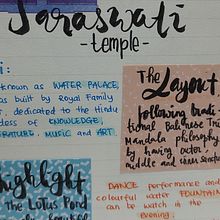 Saraswati
-temple-
i:
known as WATER PALACE,
as built by Royal Family
, dedicated to the Hindu
dess of KNOWLEDGE,
ERATURE, MUSIC and ART.
The Layout
following
tional Balinese
Mandala philosophy
by having outer,
middle and inner
highlight
The Lotus Pond
DANCE performance and
colourful water FOUNTAIN
can be watch in the
evening.